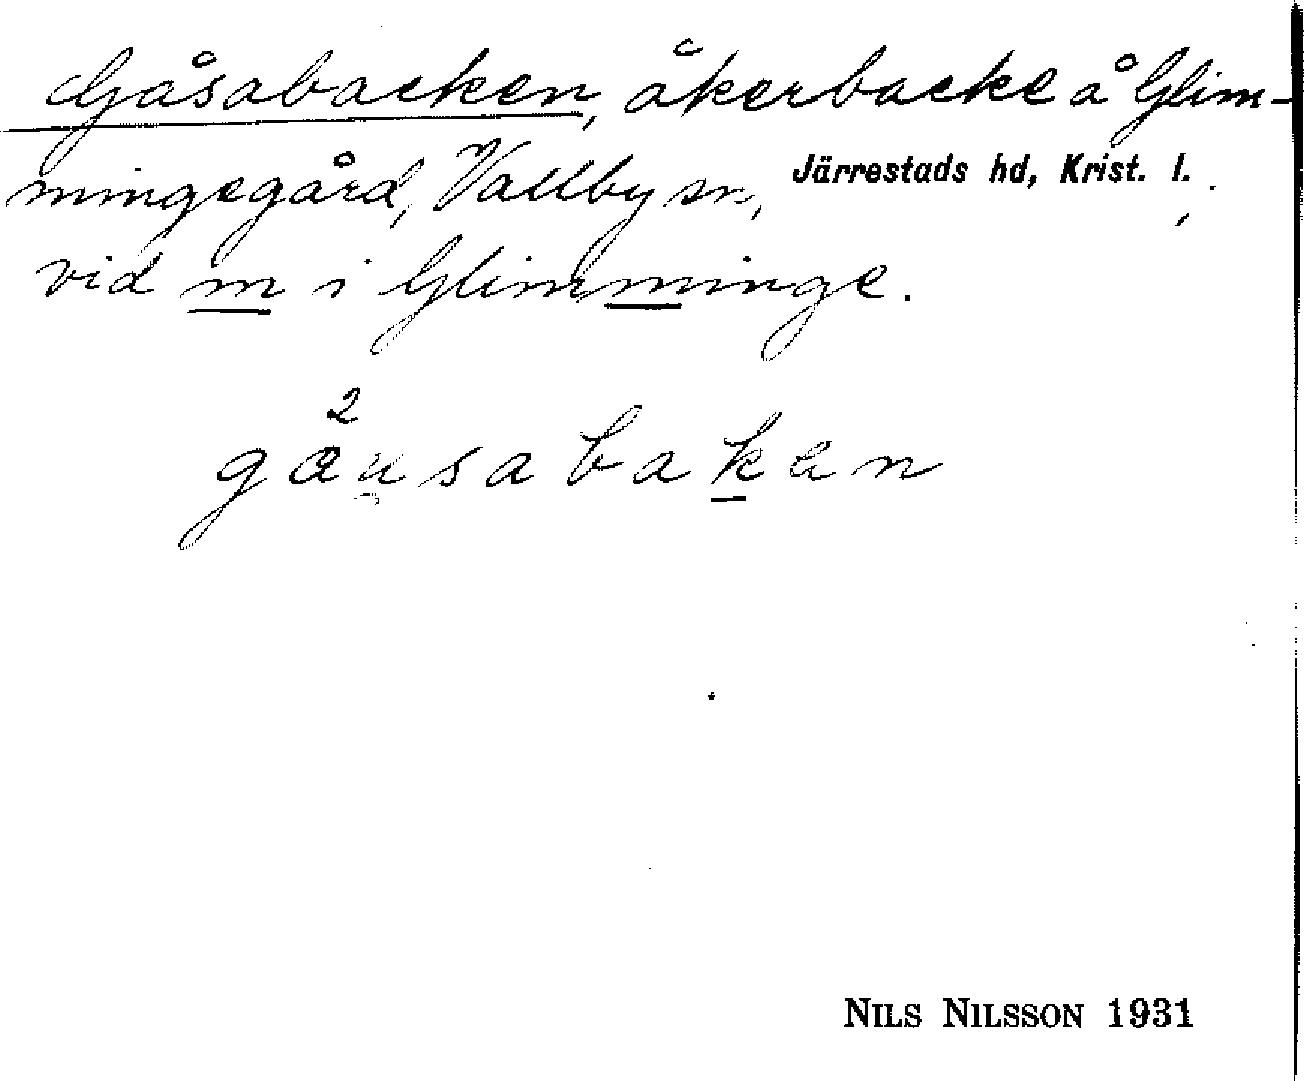 Gåsabacken, åkerbacke å Glim-
mingegård, Vallby sn, Järrestads hd, Krist. l.,
vid m i Glimminge.
2
gåusabaken
NILS NILSSON 1931